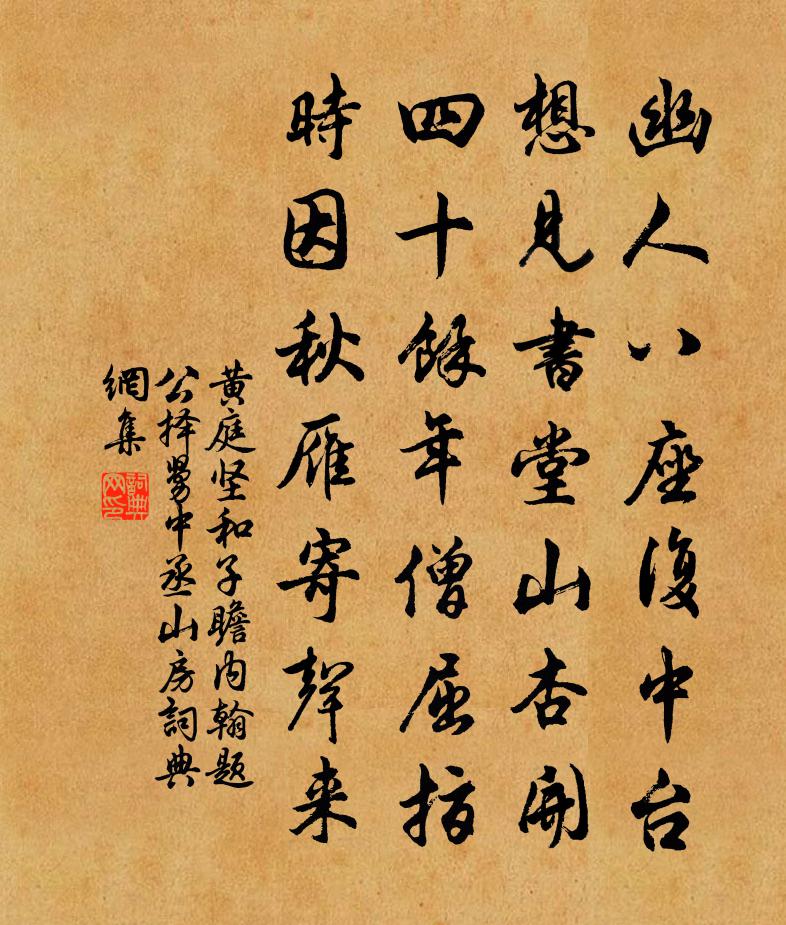 幽人八座復中台
想見書堂山杏開
四十餘年僧屈指
時因秋雁寄聲来
黄庭坚和子瞻内翰題
公择舅中丞山房詞典
網集
詞典
网印